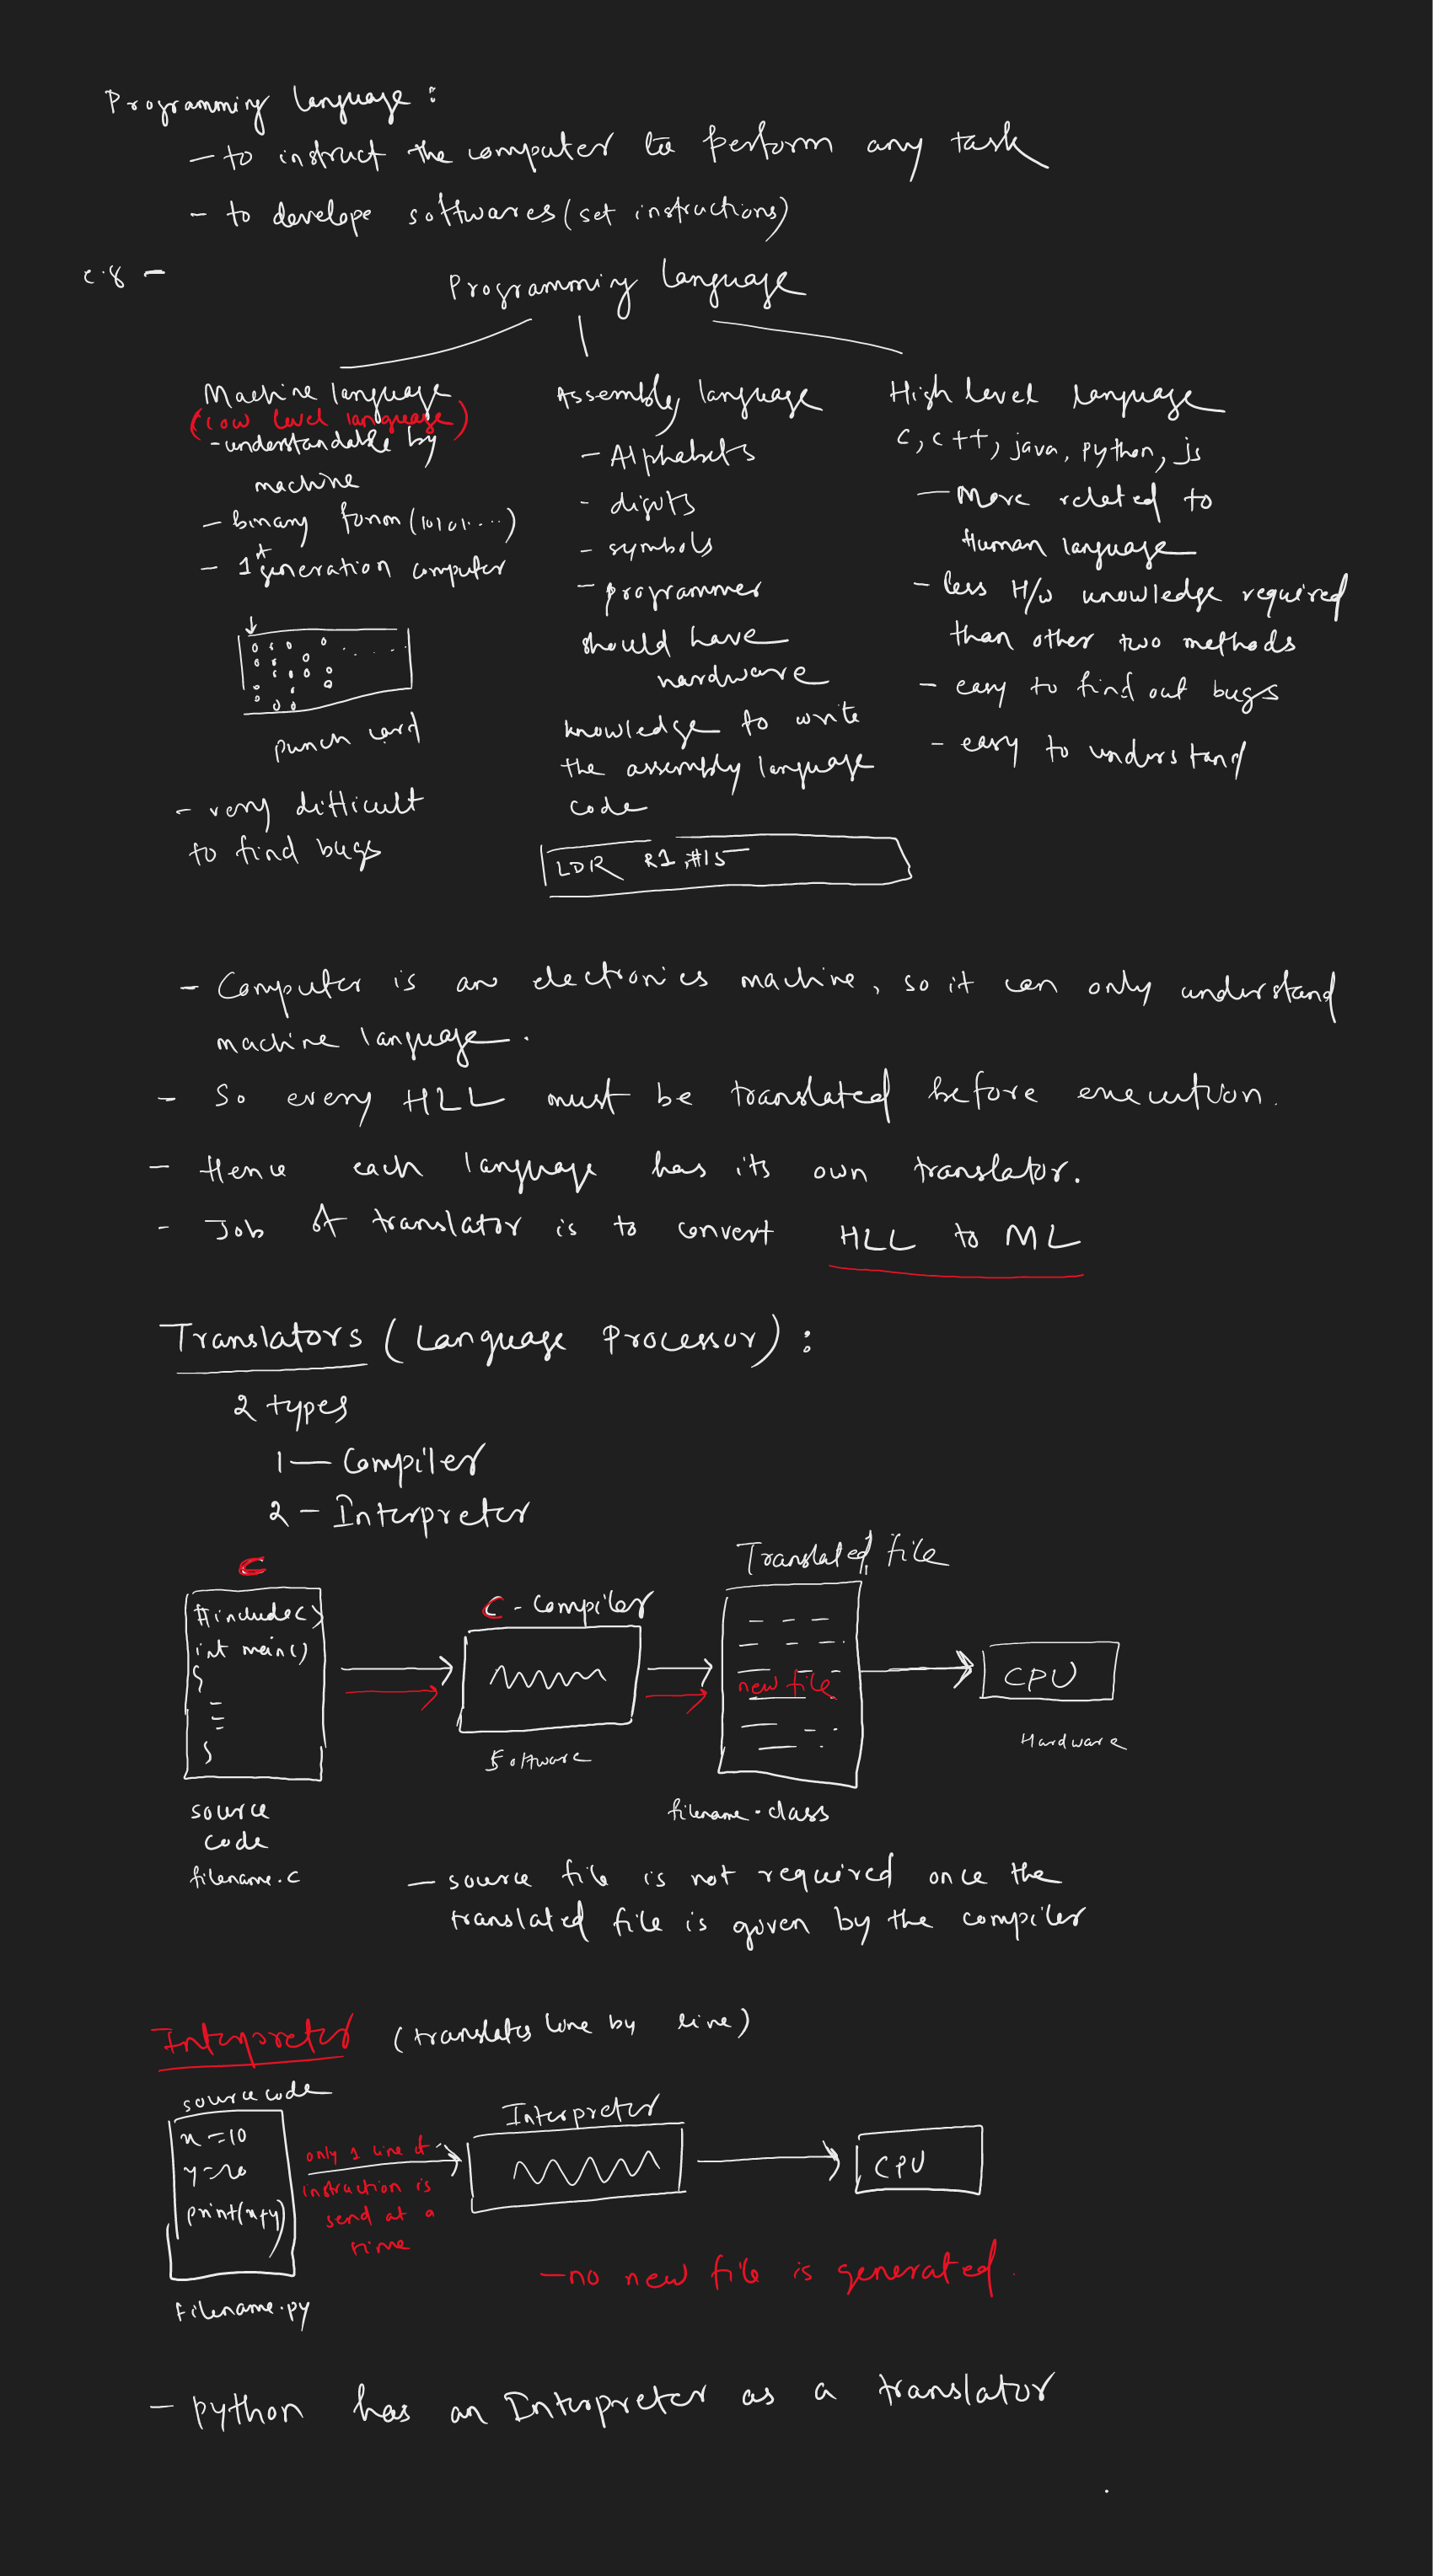 Programming language :
- to instruct the computer to perform any task
- to develope softwares (set instructions)
e.g -
Programming language
Machine language
(Low level language)
- understandable by
machine
- binary form (10101....)
- 1st generation computer
punch card
- very difficult
to find bugs
Assembly language
- Alphabets
- digits
- symbols
- programmer
should have
hardware
knowledge to write
the assembly language
code
LDR R1,#15
High level language
C, C++, java, python, js
- More related to
Human language
- less H/w knowledge required
than other two methods
- easy to find out bugs
- easy to understand
- Computer is an electronics machine, so it can only understand
machine language.
- So every HLL must be translated before execution.
- Hence each language has its own translator.
- Job of translator is to convert HLL to ML
Translators (Language Processor) :
2 types
1 - Compiler
2 - Interpreter
C
#include<>
int main()
{
}
source
code
filename.c
C - Compiler
Software
Translated file
new file
filename.class
CPU
Hardware
- source file is not required once the
translated file is given by the compiler
Interpreter (translates line by line)
source code
x=10
y=20
print(x+y)
filename.py
only 1 line of
instruction is
send at a
time
Interpreter
CPU
- no new file is generated.
- python has an Interpreter as a translator